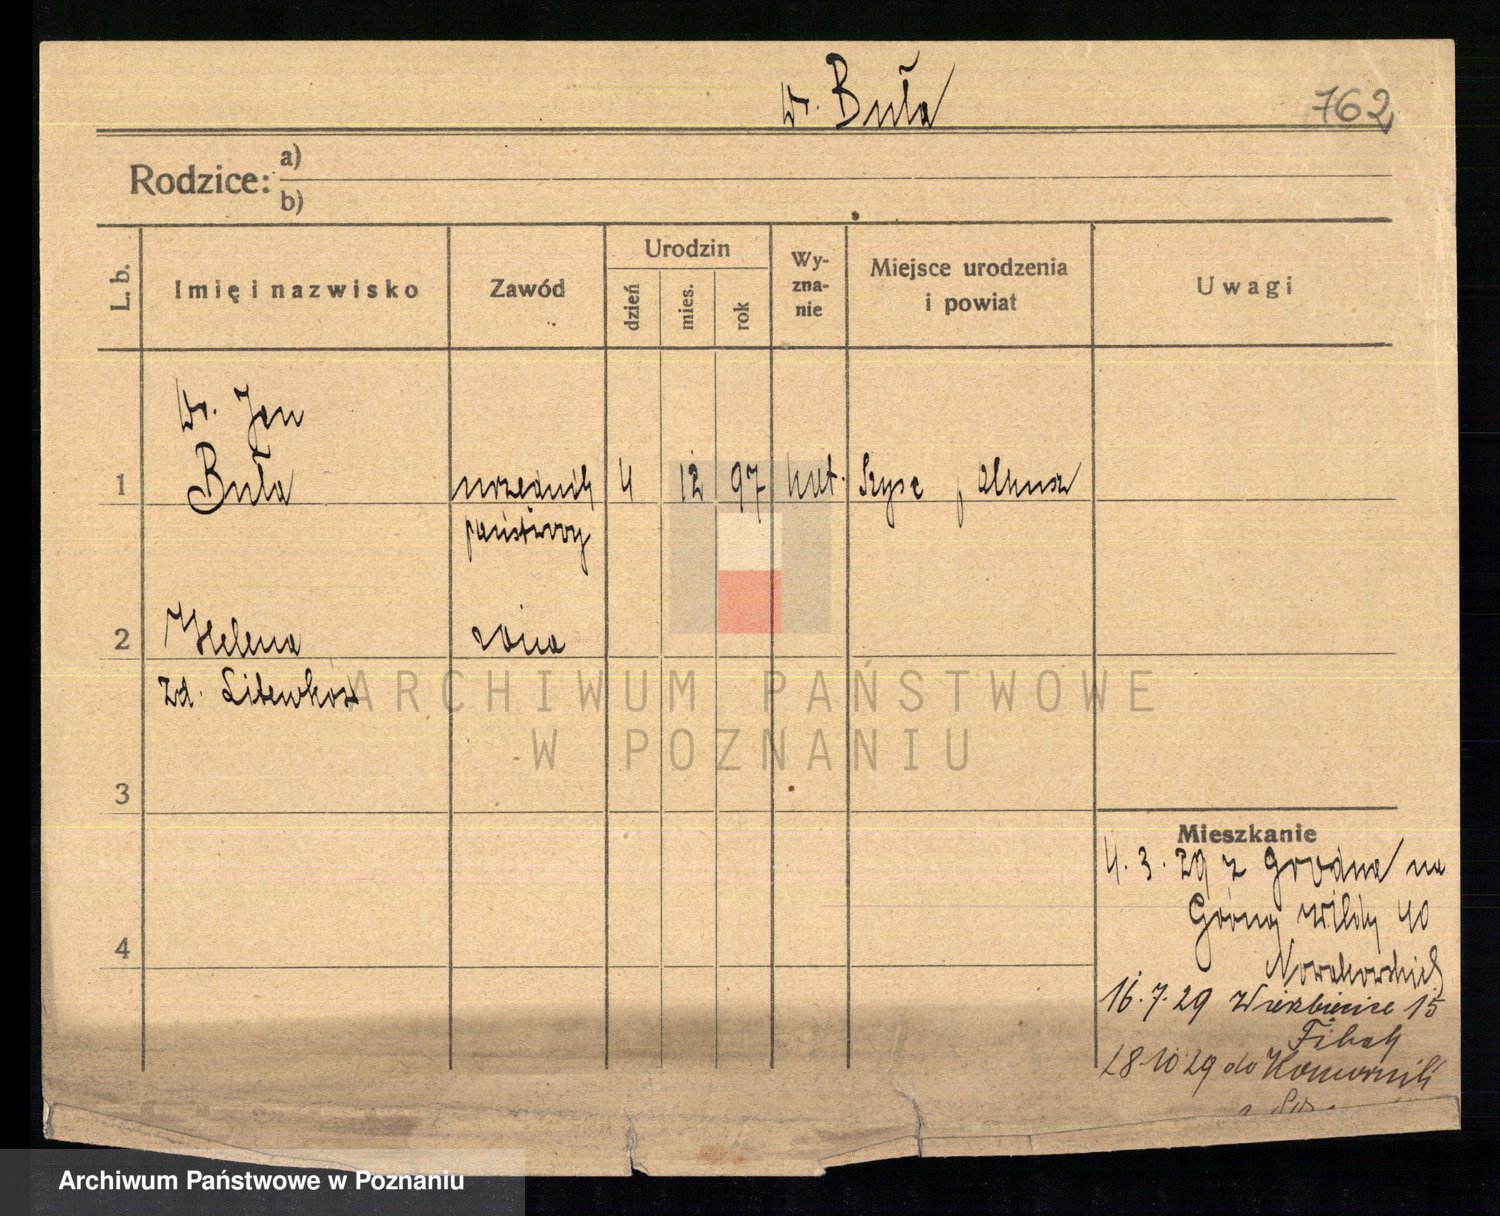 Dr. Buła
762
Rodzice: a)
b)
L. b.
Imię i nazwisko
Zawód
Urodzin
dzień
mies.
rok
Wy-
zna-
nie
Miejsce urodzenia
i powiat
Uwagi
Dr. Jan
1 Buła urzędnik 4 12 97 kat. Olkusz
państwowy
2 Helena żona
zd. Litewków
ARCHIWUM PAŃSTWOWE
W POZNANIU
3
Mieszkanie
4.3.29 z Grodna na
Górną Wildę 40
4
Nowakowskich
16.7.29 Wierzbięcice 15
Fibak
28.10.29 do Komorniki
Archiwum Państwowe w Poznaniu